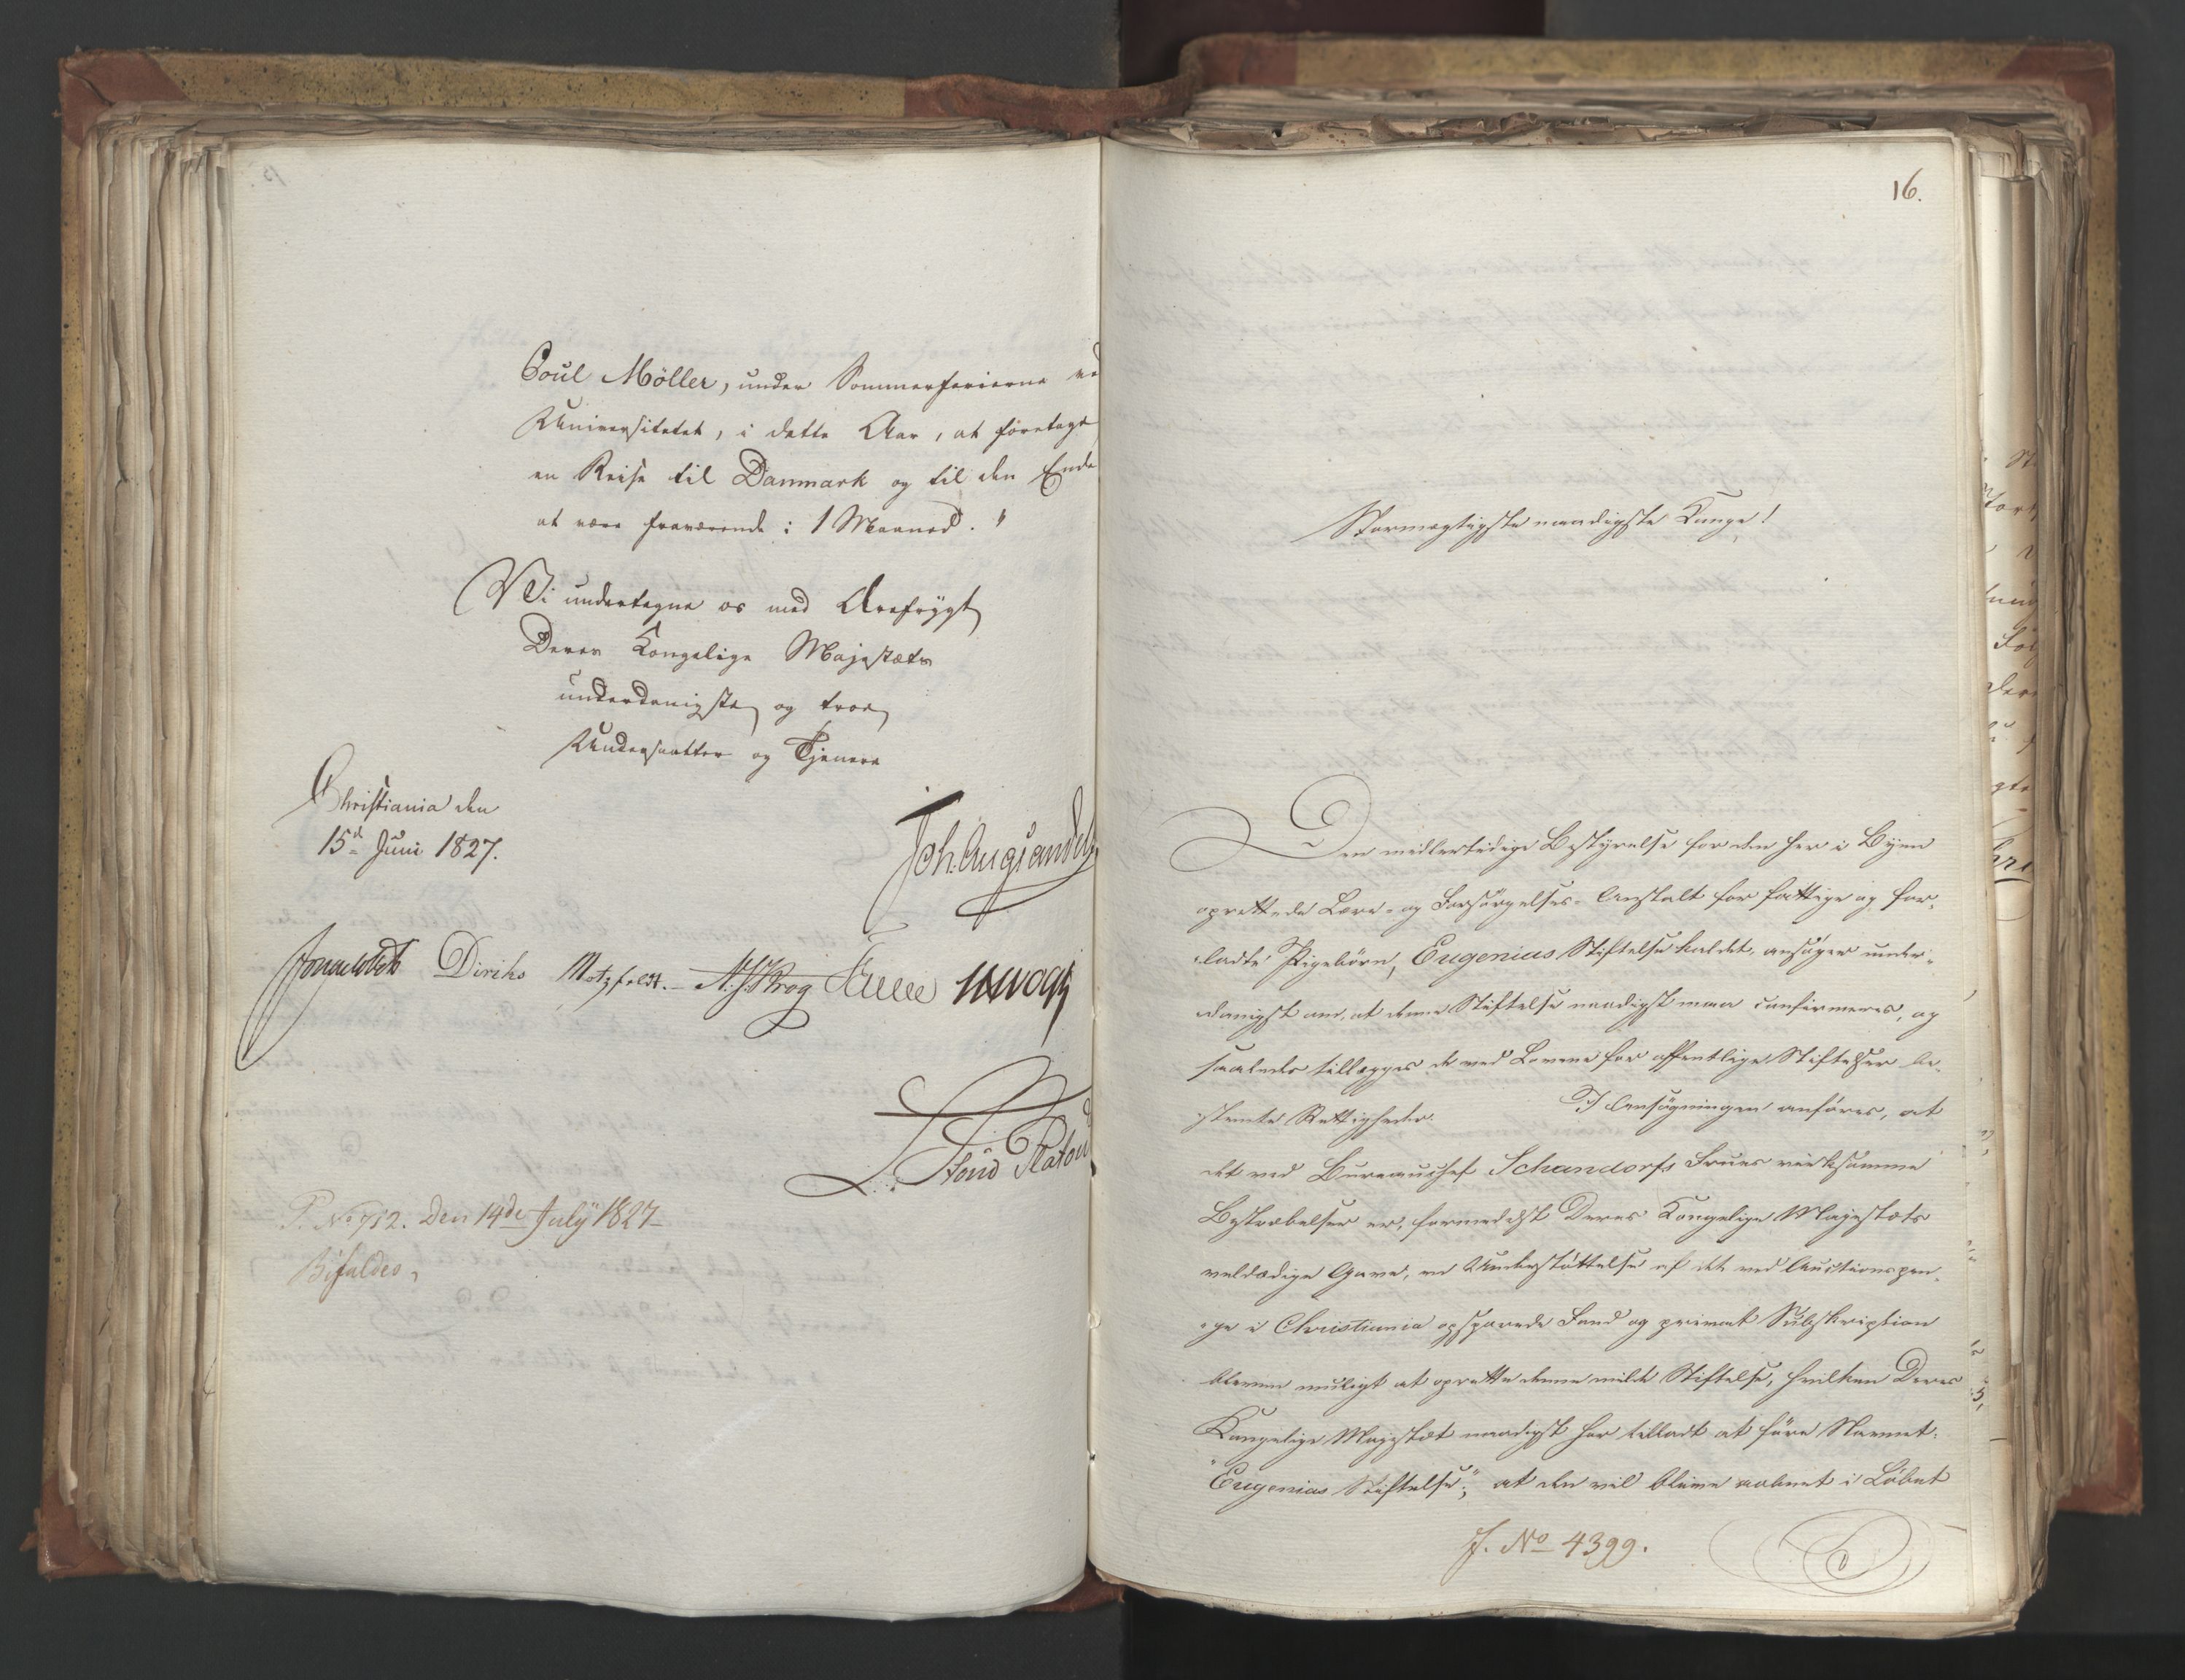 Poul Möller, under Sommerferierne ved
Universitetet, i dette Aar, at foretage
en Reise til Danmark og til den Ende
at være fraværende i 1 Maaned."
Vi undertegne os med Ærefrygt
Deres Kongelige Majestæts
underdanigste og troe
Undersaatter og Tjenere
Christiania den
15d Juni 1827.
Joh. Aug. Sandels
Sommerhielm Diriks Motzfeldt. N. J. Krog Hwogt
Stoud Platou
P. No 752. Den 14de July 1827
Bifaldes,
16.
Stormægtigste naadigste Konge!
Den midlertidige Bestyrelse for den her i Byen
oprettede Lære- og Forsørgelses-Anstalt for fattige og for-
ladte Pigebørn, Eugenias Stiftelse kaldet, ansøger under-
danigst om, at denne Stiftelse naadigst maa confirmeres, og
saaledes tillægges de ved Lovene for offentlige Stiftelser be-
stemte Rettigheder. I Ansøgningen anføres, at
det ved Bureauchef Schandorfs Frues virksomme
Bestræbelser er, formedelst Deres Kongelige Majestæts
veldædige Gave, en Understøttelse af det ved Auctionspen-
ge i Christiania opsparede Fond og privat Subskription
bleven muligt at oprette denne milde Stiftelse, hvilken Deres
Kongelige Majestæt naadigst har tilladt at føre Navnet:
"Eugenias Stiftelse;" at den vil blive aabnet i Løbet
J. No 4399.